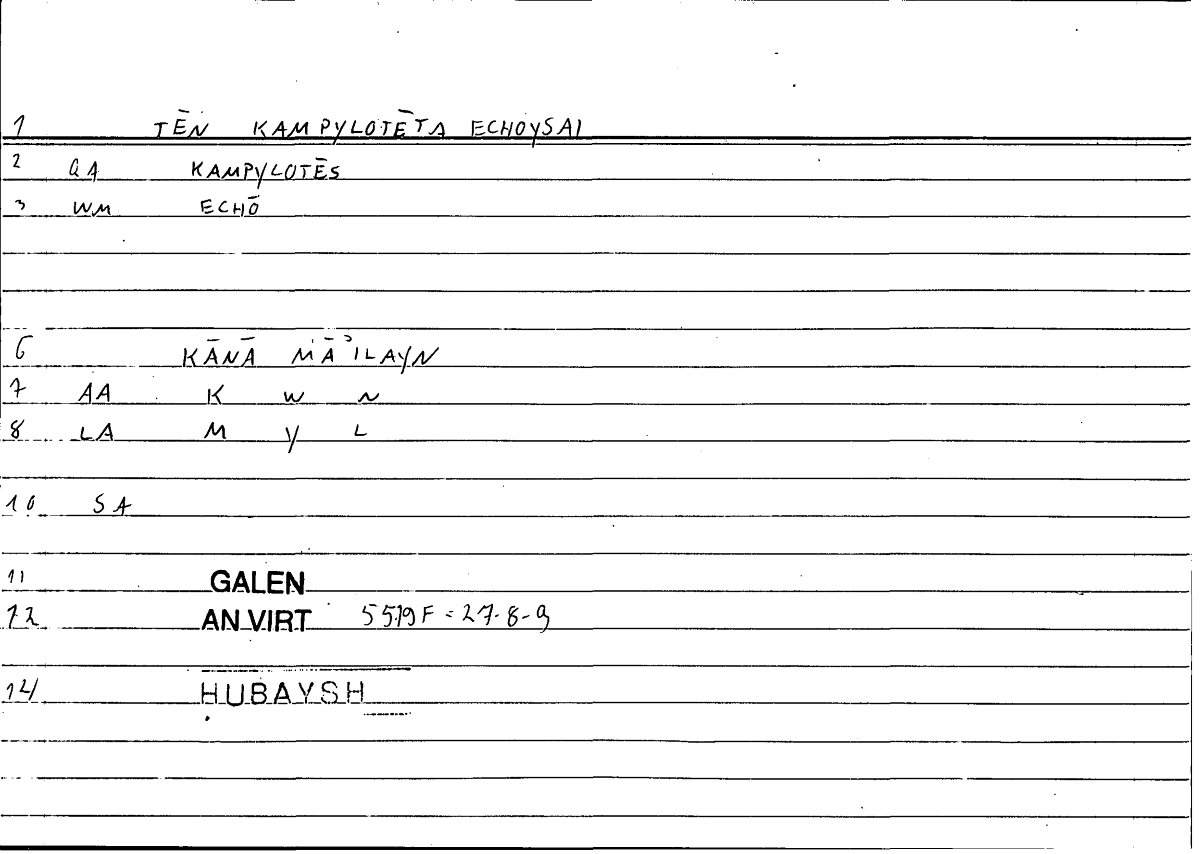 1 TĒN KAMPYLOTĒTA ECHOYSAI
2 QA KAMPYLOTĒS
3 WM ECHŌ
6 KĀNĀ MĀʾILAYN
7 AA K W N
8 LA M Y L
10 SA
11 GALEN
12 AN VIRT 5519F = 27-8-9
14 HUBAYSH